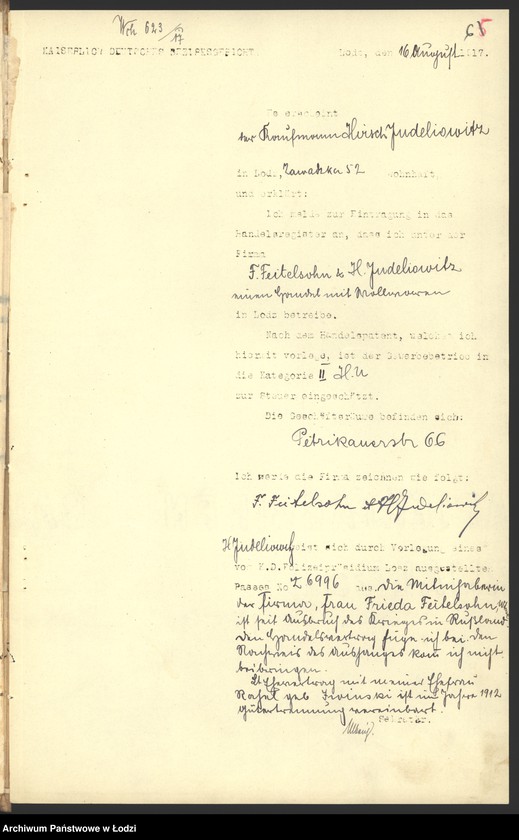 Wch 623/17
65
KAISERLICH DEUTSCHES BEZIRKSGERICHT.
Lodz, den 16 August 1917.
Es erscheint
der Kaufmann Hirsch Judeliowitz
in Lodz, Zawadzka 52 wohnhaft,
und erklärt:
Ich melde zur Eintragung in das
Handelsregister an, dass ich unter der
Firma
F. Feitelsohn & H. Judeliowitz
einen Handel mit Wollwaren
in Lodz betreibe.
Nach dem Handelspatent, welches ich
hiermit vorlege, ist der Gewerbebetrieb in
die Kategorie II H.U
zur Steuer eingeschätzt.
Die Geschäftsräume befinden sich:
Petrikauerstr 66
Ich werde die Firma zeichnen wie folgt:
F. Feitelsohn & H Judeliowitz
H Judeliowitz weist sich durch Vorlegung eines
vom K.D.Polizeipräsidium Lodz ausgestellten
Passes No Z 6996 aus. Die Mitinhaberin
der Firma, Frau Frieda Feitelsohn,
ist seit Ausbruch des Krieges in Rußland.
Den Handelsvertrag füge ich bei. Den
Nachweis des Ausganges kann ich nicht
beibringen.
Lt Ehevertrag mit meiner Ehefrau
Rahel geb Liwinski ist im Jahre 1912
Gütertrennung vereinbart.
Sekretär.
Archiwum Państwowe w Łodzi